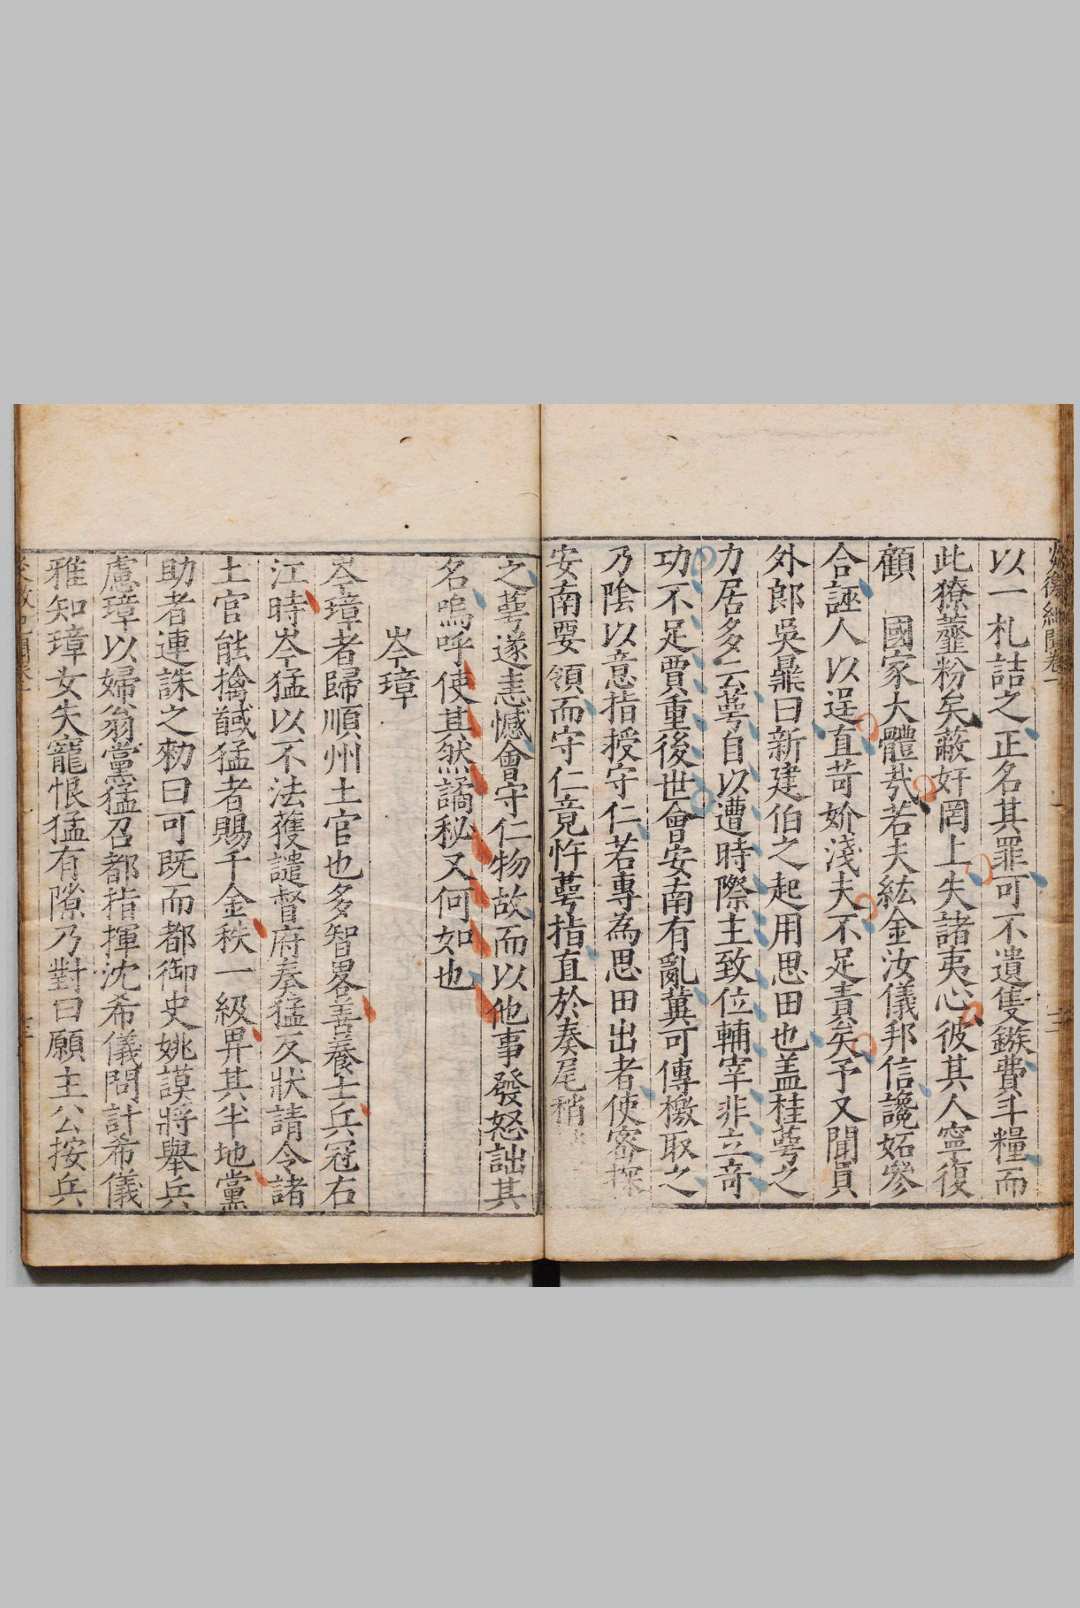 炎徼紀聞卷一
以一札詰之正名其罪可不遺隻鏃費斗糧而
此獠虀粉矣蔽奸罔上失諸夷心彼其人寧復
顧　國家大體㢤若夫紘金汝儀邦信讒妬參
合誣人以逞直苛妎淺夫不足責矣予又聞員
外郎吳鼎曰新建伯之起用思田也盖桂萼之
力居多云萼自以遭時際主致位輔宰非立奇
功不足賈重後世會安南有亂冀可傳檄取之
乃陰以意指授守仁若專為思田出者使密探
安南要領而守仁竟忤萼指直於奏尾稍
之萼遂恚憾會守仁物故而以他事發怒詘其
名嗚呼使其然譎秘又何如也
岑璋
岑璋者歸順州土官也多智畧善養士兵冠右
江時岑猛以不法蒦譴督府奏猛反狀請令諸
土官能擒馘猛者賜千金秩一級畀其半地黨
助者連誅之勑曰可既而都御史姚謨將舉兵
慮璋以婦翁黨猛召都指揮沈希儀問計希儀
雅知璋女失寵恨猛有隙乃對曰願主公按兵